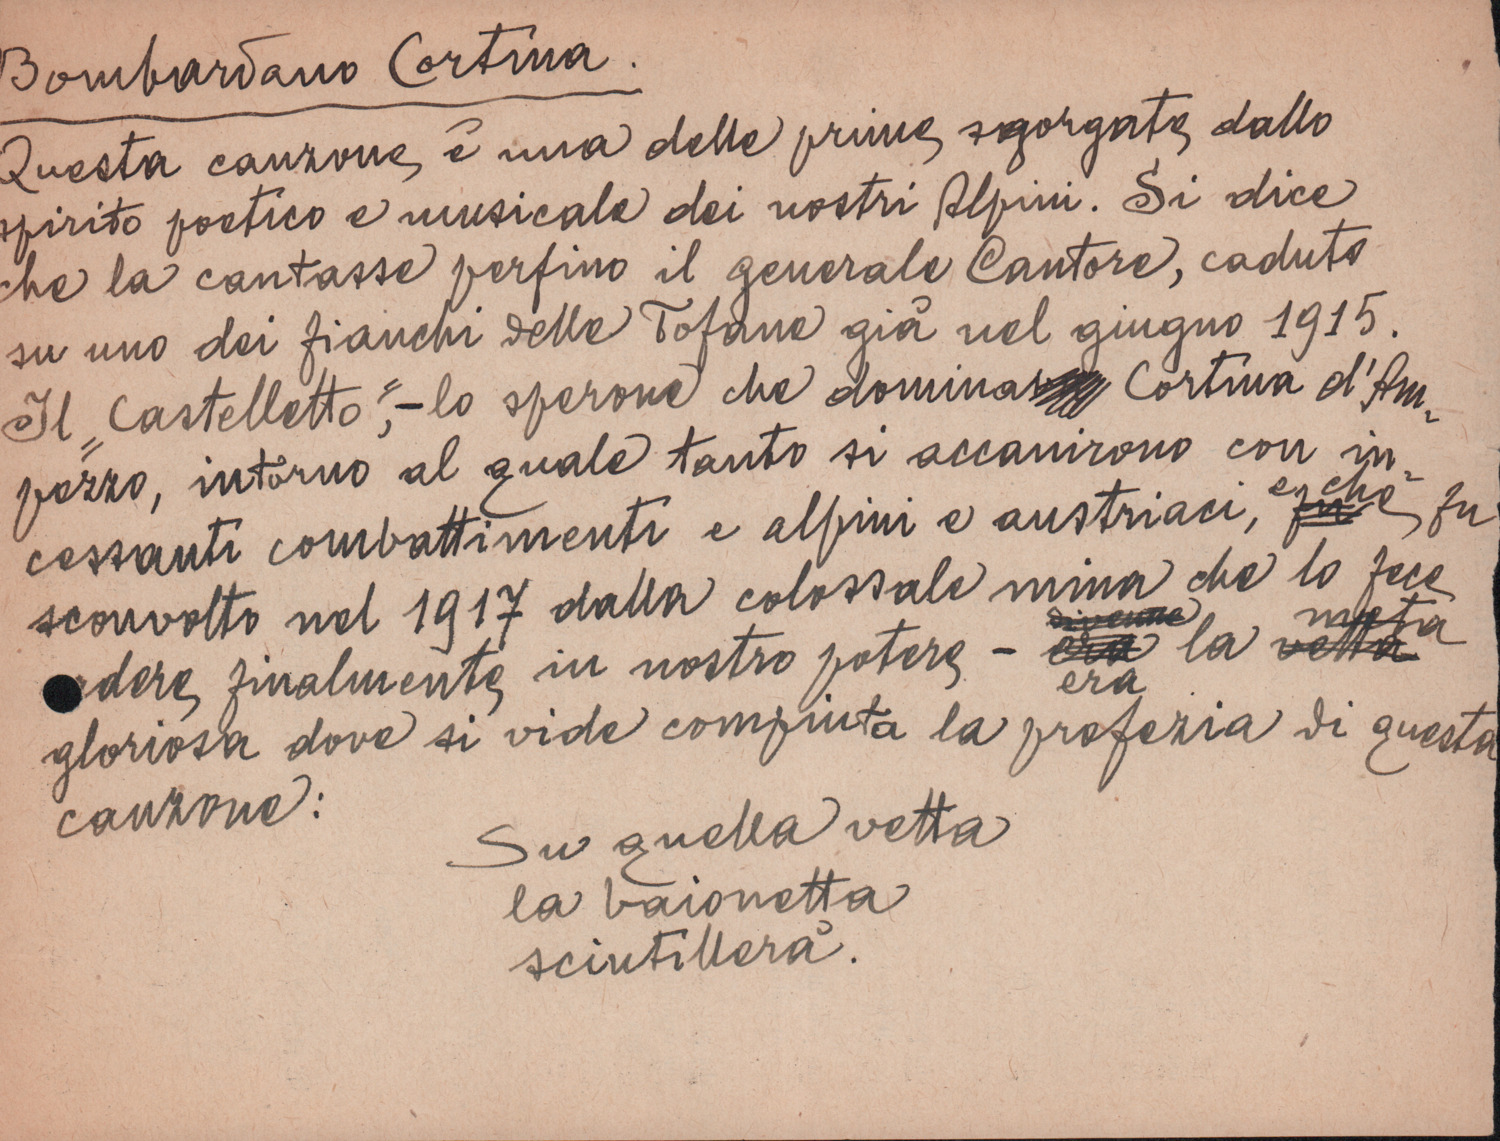 Bombardano Cortina.
Questa canzone è una delle prime sgorgate dallo
spirito poetico e musicale dei nostri Alpini. Si dice
che la cantasse perfino il generale Cantore, caduto
su uno dei fianchi delle Tofane già nel giugno 1915.
Il „Castelletto”, – lo sperone che domina Cortina d'Am-
pezzo, intorno al quale tanto si accanirono con in-
cessanti combattimenti e alpini e austriaci, e che fu
sconvolto nel 1917 dalla colossale mina che lo fece
dere finalmente in nostro potere – era la meta
gloriosa dove si vide compiuta la profezia di questa
canzone:
Su quella vetta
la baionetta
scintillerà.